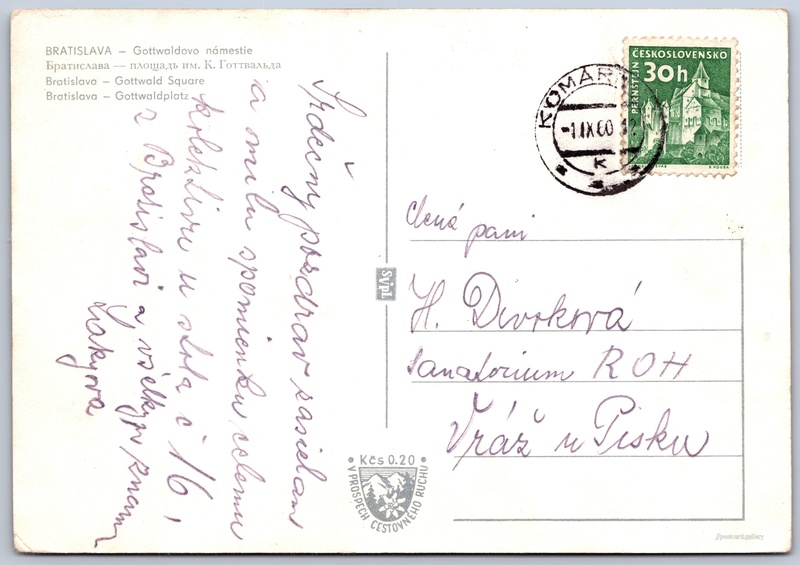 BRATISLAVA — Gottwaldovo námestie
Братислава — площадь им. К. Готтвальда
Bratislava — Gottwald Square
Bratislava — Gottwaldplatz
Srdečný pozdrav zasielam
a milu spomienku celemu
kolektivu u stola č 16,
z Bratislavi a všetkym znamim
ČESKOSLOVENSKO
PERNŠTEJN
30h
KOMÁR
-1.IX.60
K
Ctená pani
H. Dvorková
sanatorium ROH
Vráž u Pisku
Svjpl
Kčs 0.20
V PROSPECH CESTOVNÉHO RUCHU
postcard.gallery